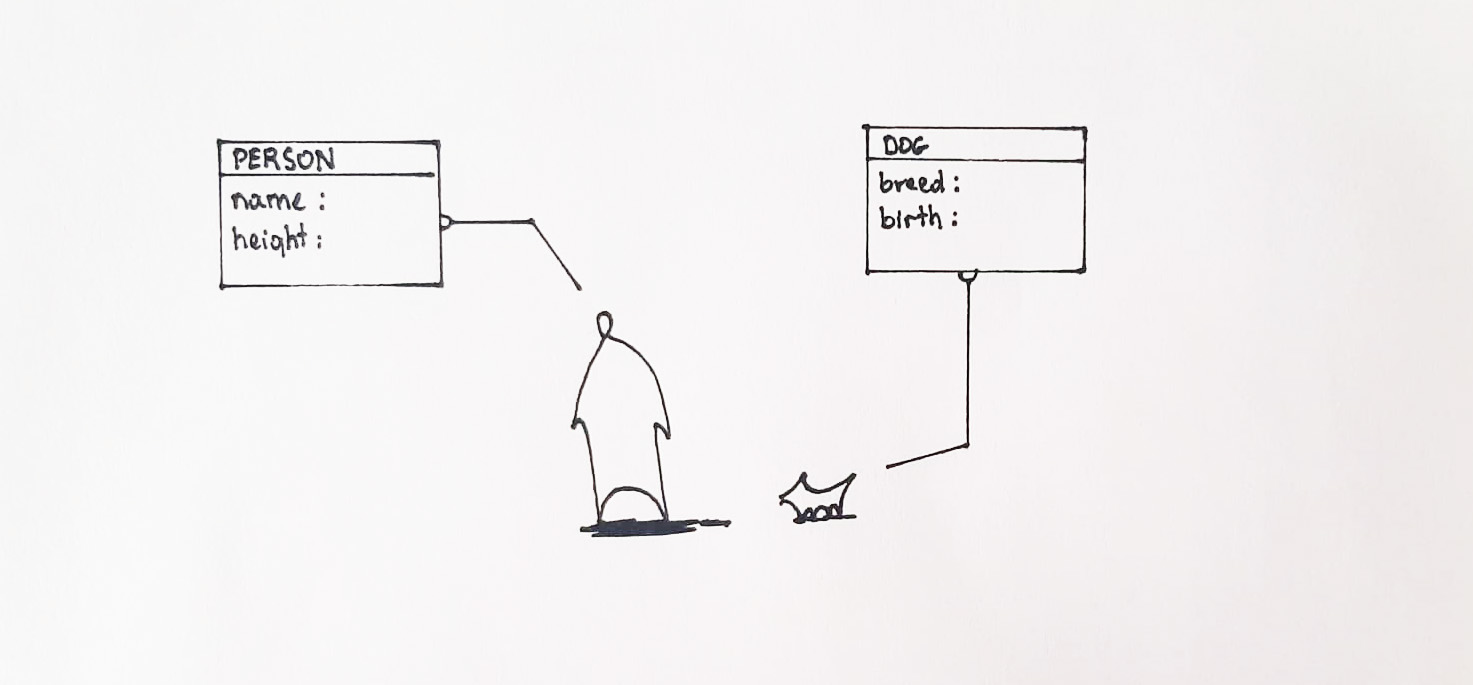 PERSON
name :
height :
DOG
breed :
birth :